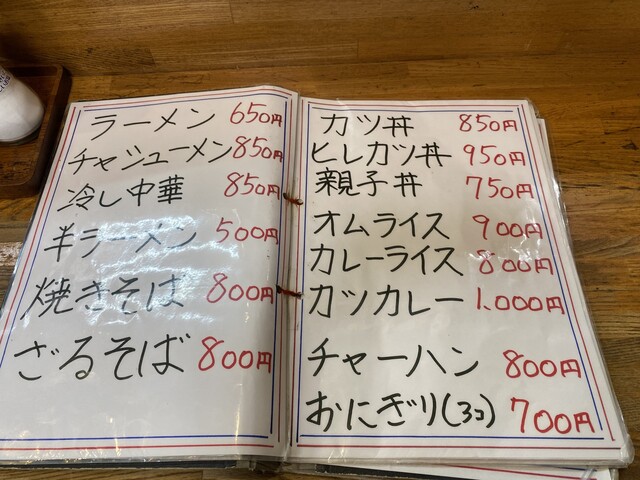 ラーメン 650円
チャシューメン 850円
冷し中華 850円
半ラーメン 500円
焼きそば 800円
ざるそば 800円
カツ丼 850円
ヒレカツ丼 950円
親子丼 750円
オムライス 900円
カレーライス 800円
カツカレー 1,000円
チャーハン 800円
おにぎり(3コ) 700円